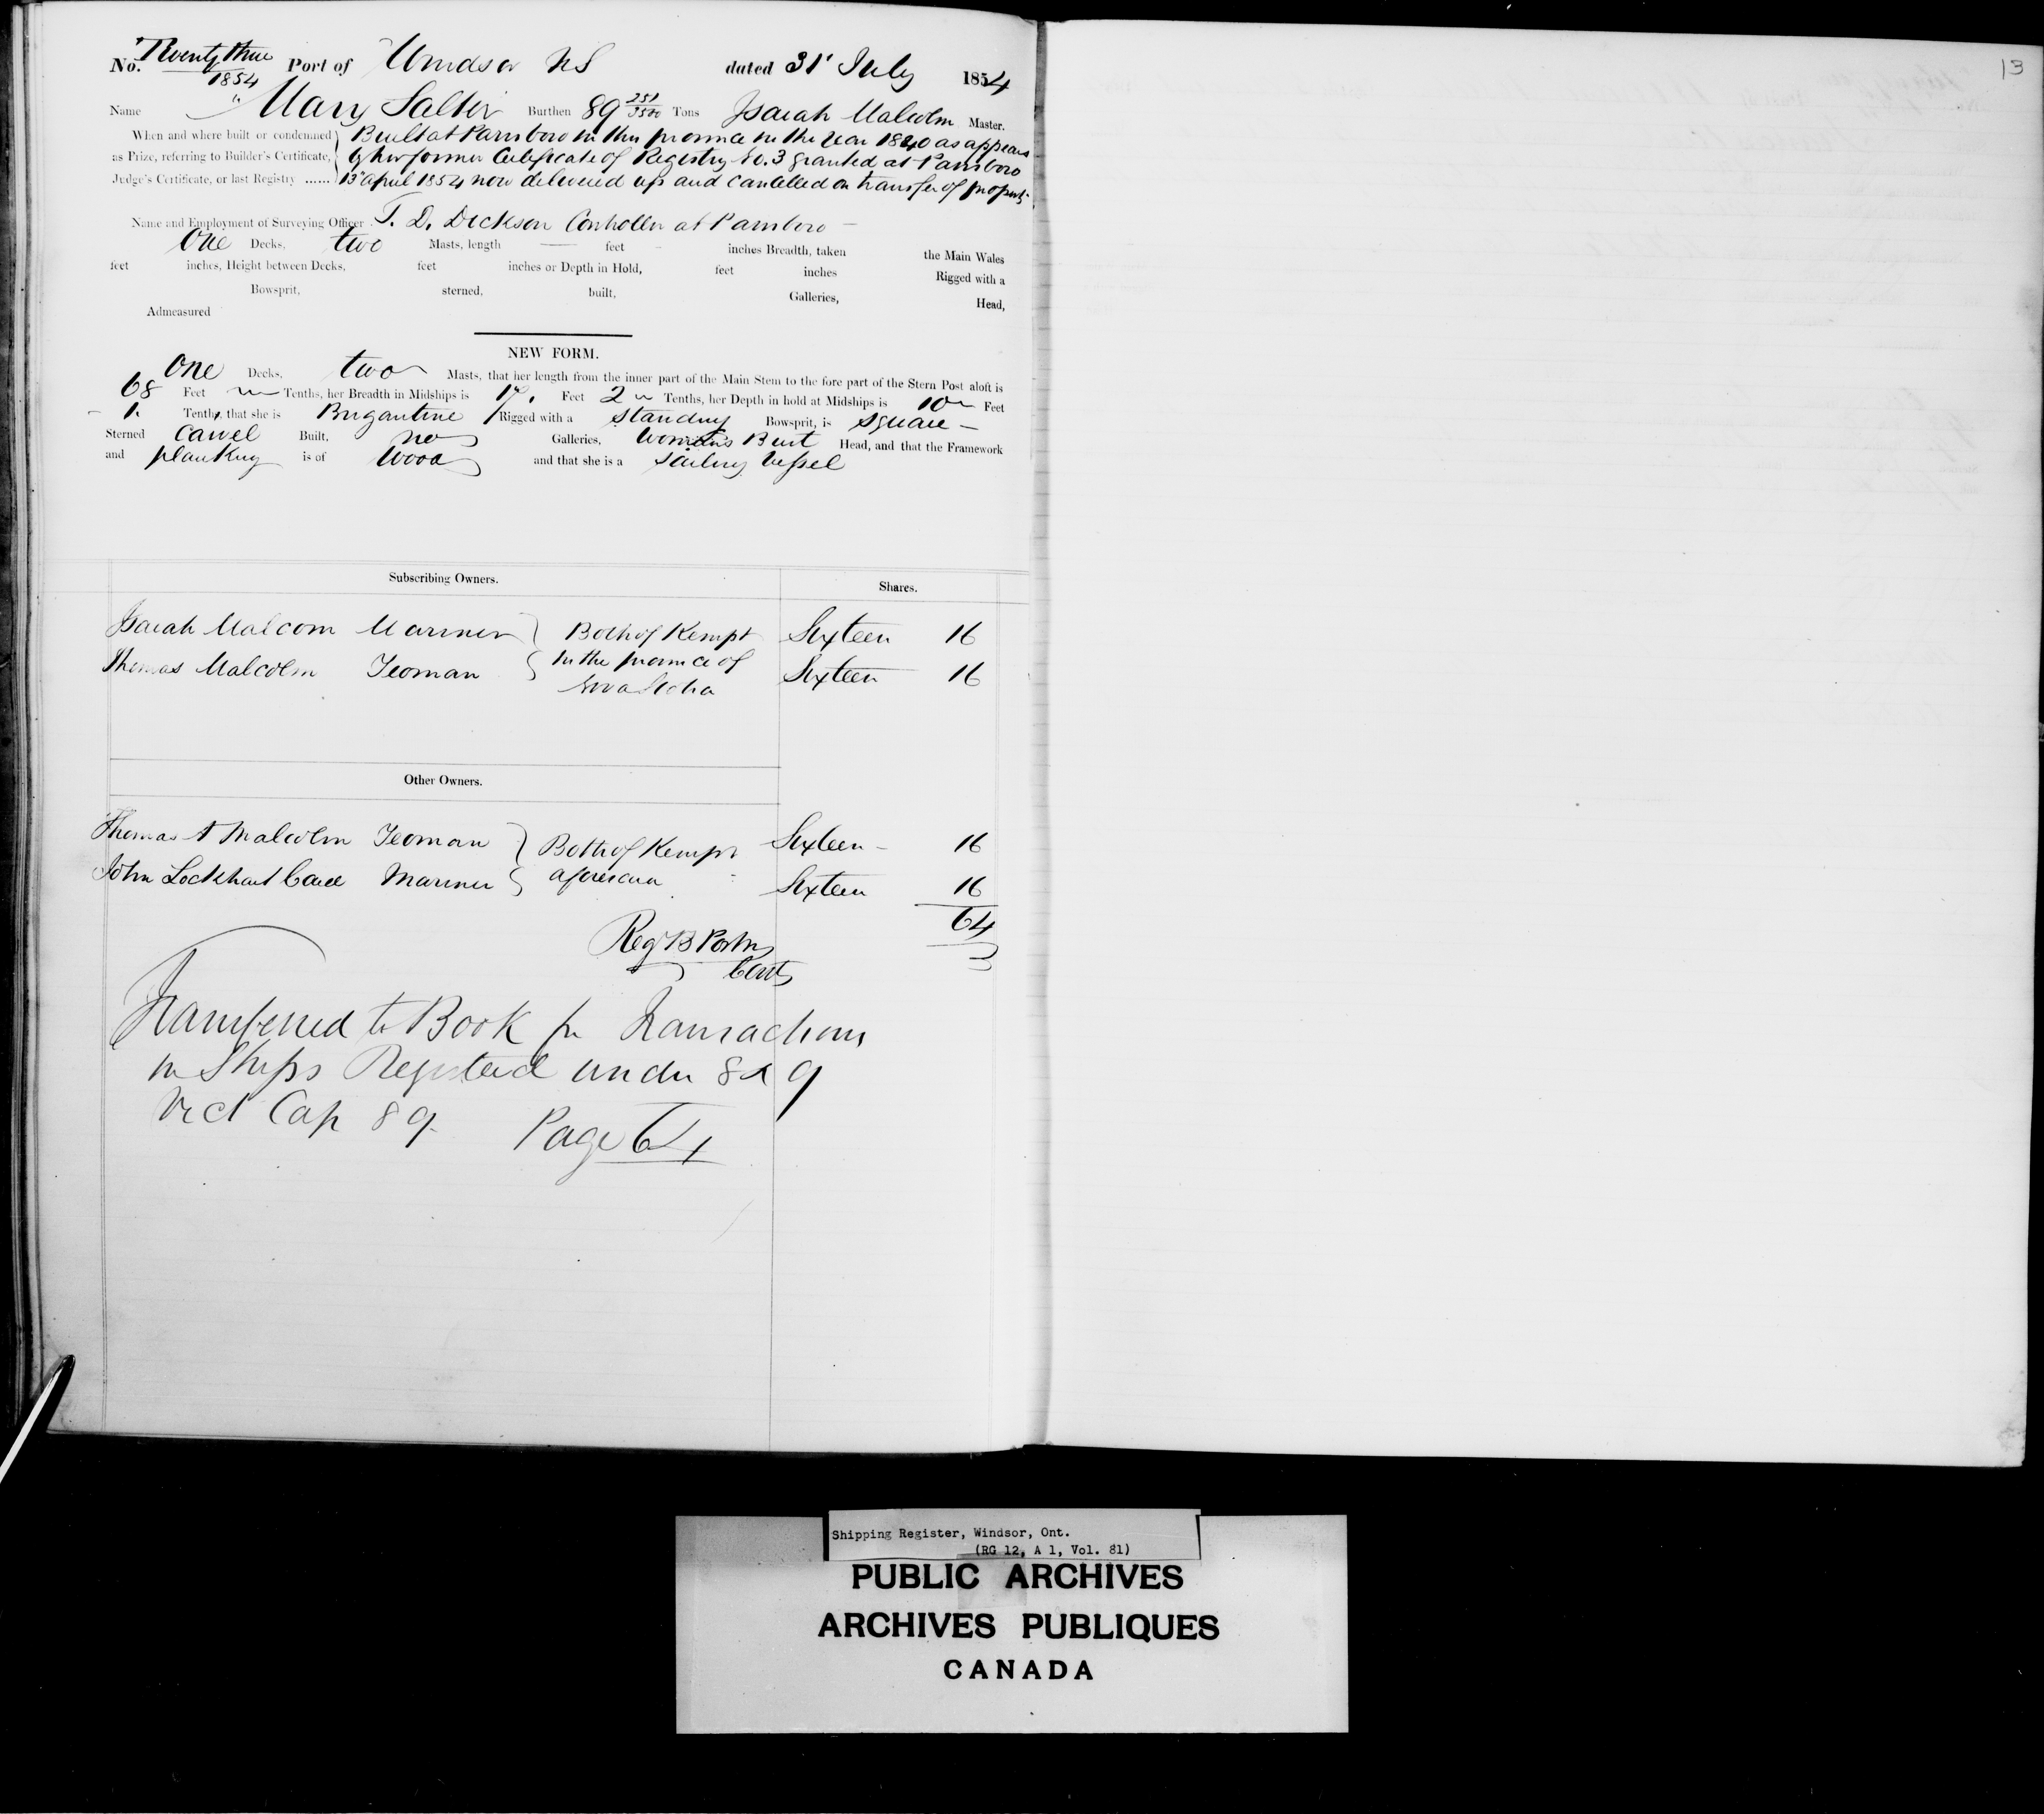 No. Twenty three Port of Windsor NS dated 31st July 1854
1854
Name "Mary Salter" Burthen 89 251/3500 Tons Isaiah Malcolm Master.
When and where built or condemned Built at Parrsboro in this province in the Year 1840 as appears
as Prize, referring to Builder's Certificate, by her former Certificate of Registry No. 3 granted at Parrsboro
Judge's Certificate, or last Registry ...... 13th april 1854 now delivered up and cancelled on transfer of property
Name and Employment of Surveying Officer T. D. Dickson Controller at Parrsboro —
One Decks, two Masts, length — feet - inches Breadth, taken the Main Wales
feet inches, Height between Decks, feet inches or Depth in Hold, feet inches Rigged with a
Bowsprit, sterned, built, Galleries, Head,
Admeasured
NEW FORM.
One Decks, two Masts, that her length from the inner part of the Main Stem to the fore part of the Stern Post aloft is
68 Feet Tenths, her Breadth in Midships is Feet 2 Tenths, her Depth in hold at Midships is 10 Feet
1. Tenths, that she is Brigantine Rigged with a Standing Bowsprit, is Square —
Sterned Carvel Built, no Galleries, Womans Bust Head, and that the Framework
and planking is of Wood and that she is a Sailing Vessel
Subscribing Owners. Shares.
Isaiah Malcom Mariner } Both of Kempt Sixteen 16
Thomas Malcolm Yeoman } In the province of Sixteen 16
Nova Scotia
Other Owners.
Thomas A Malcolm Yeoman } Both of Kempt Sixteen - 16
John Lockhart Mariner } aforesaid Sixteen 16
64
Reg B Porter
Cont
Transferred to Book for Transactions
in Ships Registered under 8 & 9
Vict Cap 89. Page 64
13
Shipping Register, Windsor, Ont.
(RG 12, A 1, Vol. 81)
PUBLIC ARCHIVES
ARCHIVES PUBLIQUES
CANADA